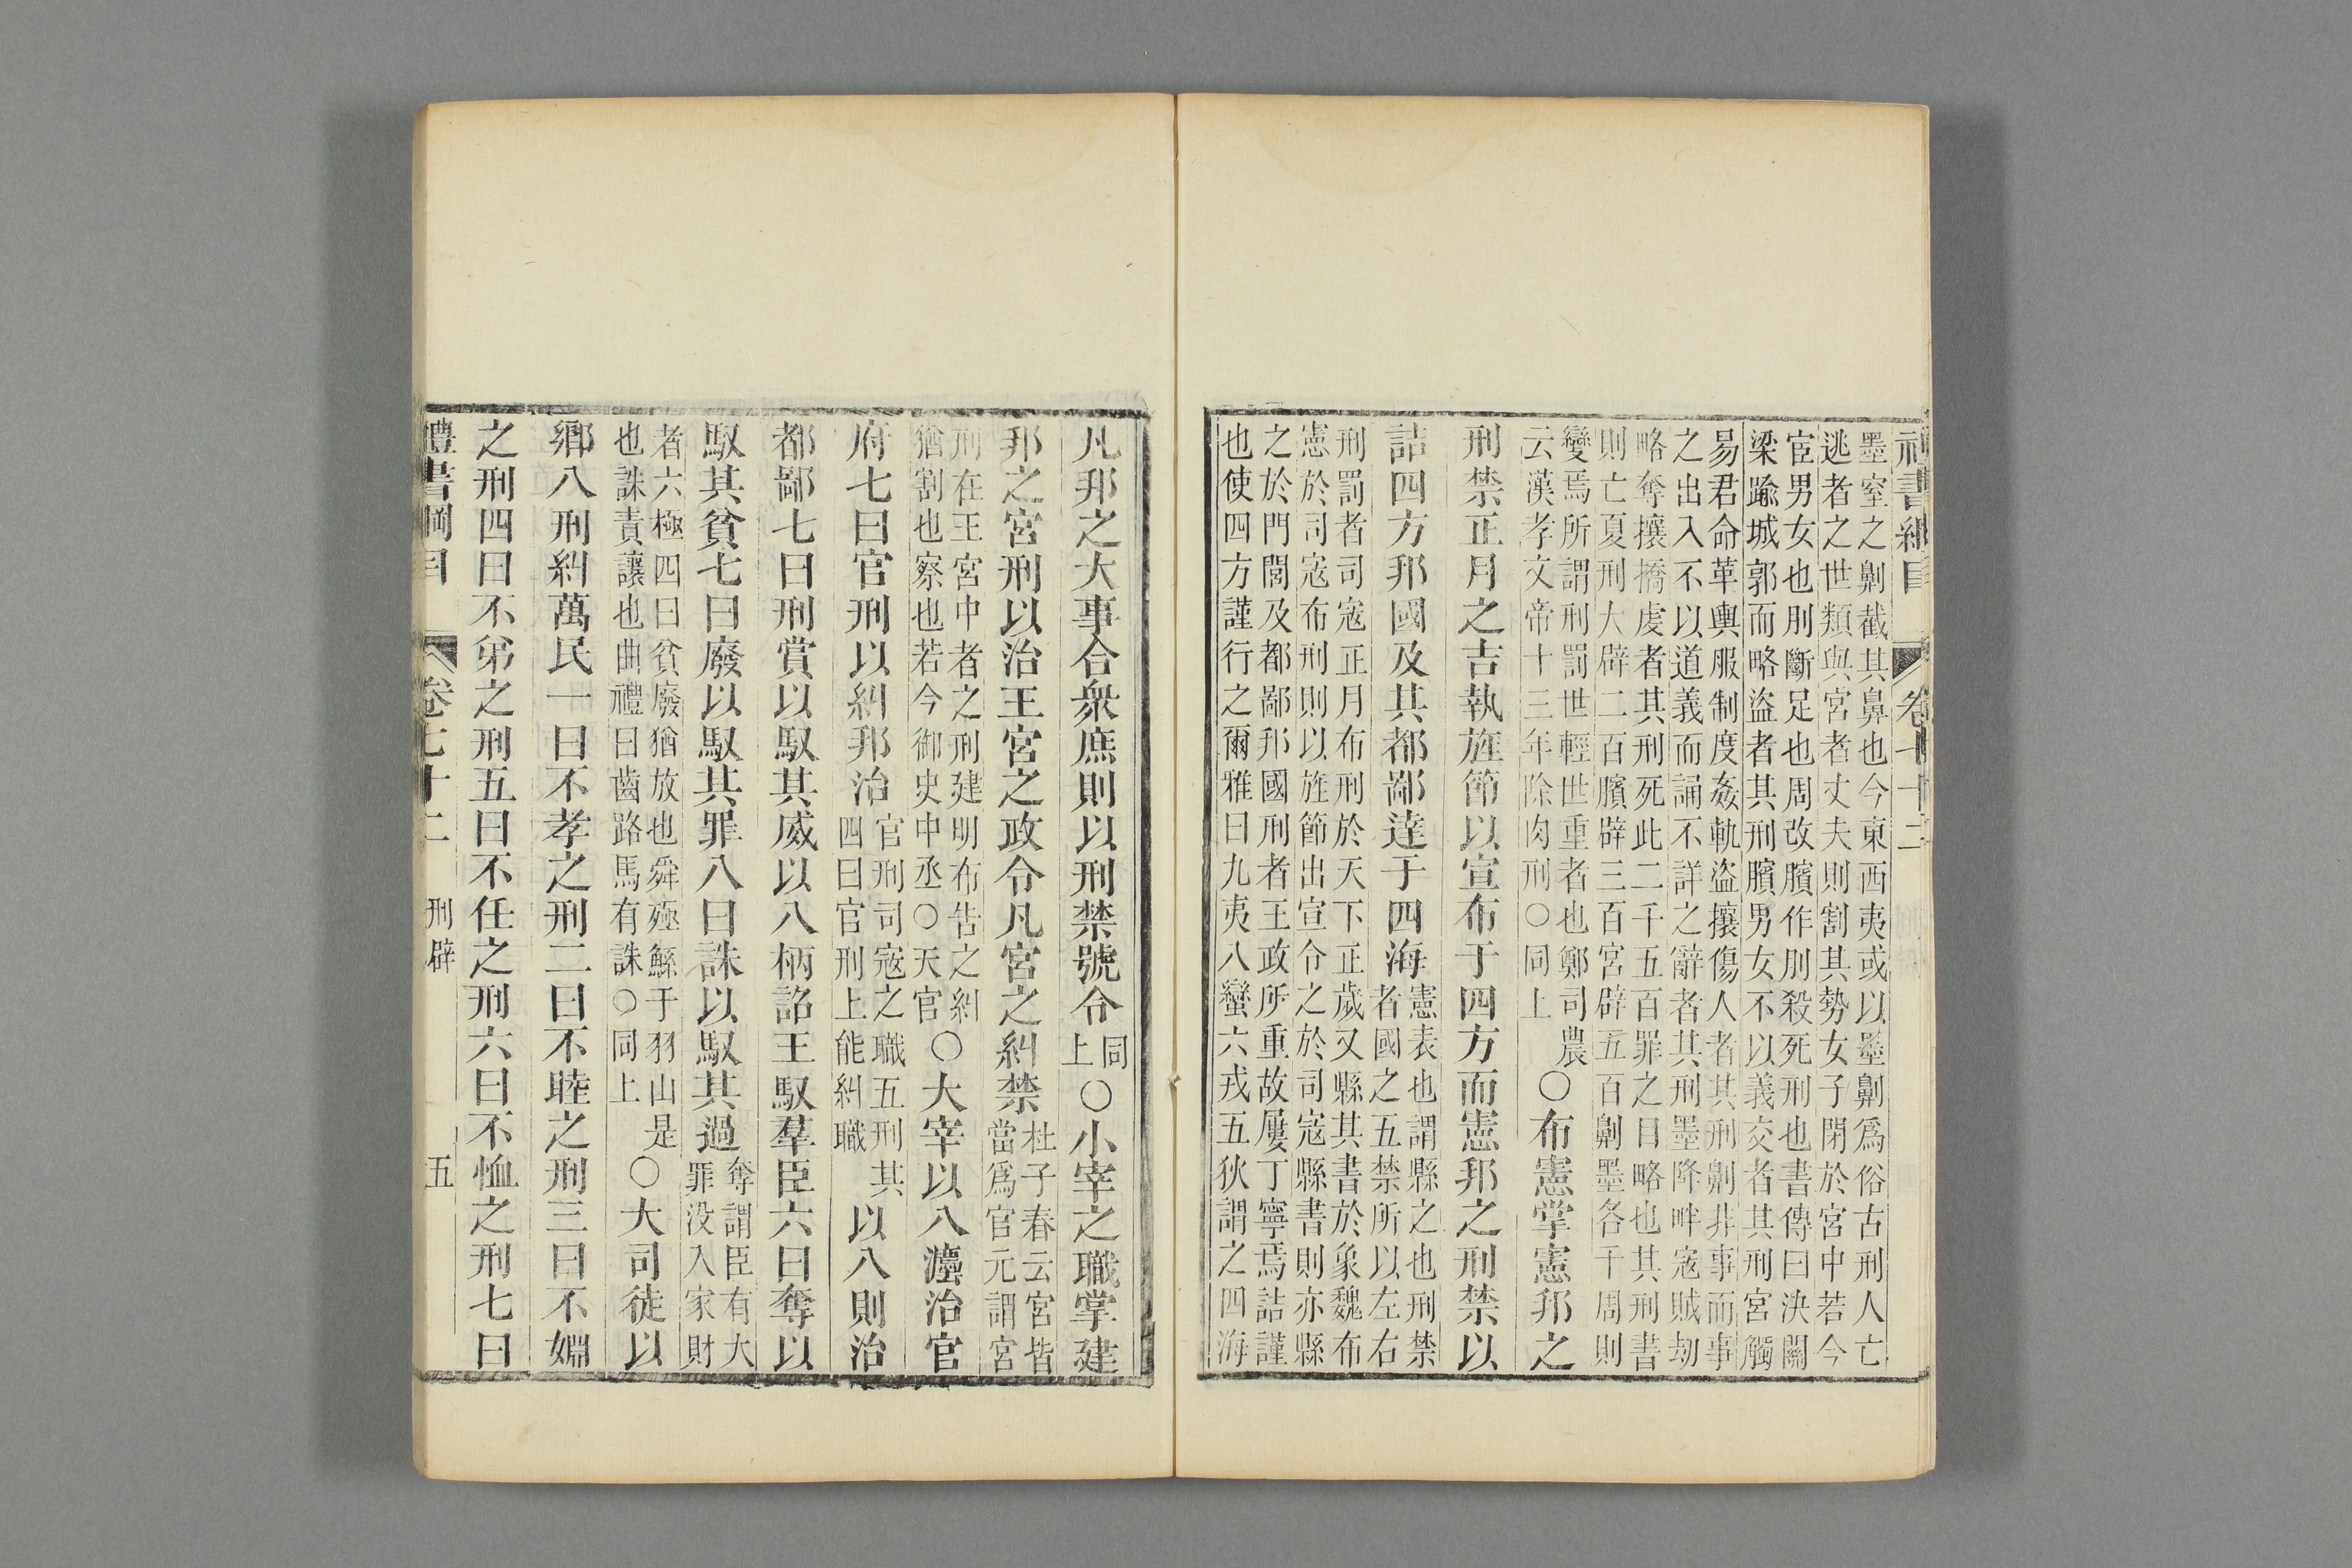 禮書綱目　卷七十二
墨窒之劓截其鼻也今東西夷或以墨劓爲俗古刑人亡
逃者之世類與宮者丈夫則割其勢女子閉於宮中若今
宦男女也刖斷足也周改臏作刖殺死刑也書傳曰決關
梁踰城郭而略盜者其刑臏男女不以義交者其刑宮觸
易君命革輿服制度姦軌盜攘傷人者其刑劓非事而事
之出入不以道義而誦不詳之辭者其刑墨降畔寇賊劫
略奪攘撟虔者其刑死此二千五百罪之目略也其刑書
則亡夏刑大辟二百臏辟三百宮辟五百劓墨各千周則
變焉所謂刑罰世輕世重者也鄭司農
云漢孝文帝十三年除肉刑○同上
○布憲掌憲邦之
刑禁正月之吉執旌節以宣布于四方而憲邦之刑禁以
詰四方邦國及其都鄙達于四海
憲表也謂縣之也刑禁
者國之五禁所以左右
刑罰者司寇正月布刑於天下正歲又縣其書於象魏布
憲於司寇布刑則以旌節出宣令之於司寇縣書則亦縣
之於門閭及都鄙邦國刑者王政所重故屢丁寧焉詰謹
也使四方謹行之爾雅曰九夷八蠻六戎五狄謂之四海
凡邦之大事合衆庶則以刑禁號令
同
上
○小宰之職掌建
邦之宮刑以治王宮之政令凡宮之糾禁
杜子春云宮皆
當爲官元謂宮
刑在王宮中者之刑建明布告之糾
猶割也察也若今御史中丞○天官
○大宰以八灋治官
府七曰官刑以糾邦治
官刑司寇之職五刑其
四曰官刑上能糾職
以八則治
都鄙七曰刑賞以馭其威以八柄詔王馭羣臣六曰奪以
馭其貧七曰廢以馭其罪八曰誅以馭其過
奪謂臣有大
罪没入家財
者六極四曰貧廢猶放也舜殛鯀于羽山是
也誅責讓也曲禮曰齒路馬有誅○同上
○大司徒以
鄉八刑糾萬民一曰不孝之刑二曰不睦之刑三曰不婣
之刑四曰不弟之刑五曰不任之刑六曰不恤之刑七曰
禮書綱目　卷七十二　刑辟　五